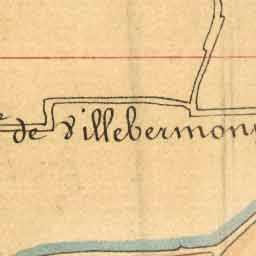 de Villebermon